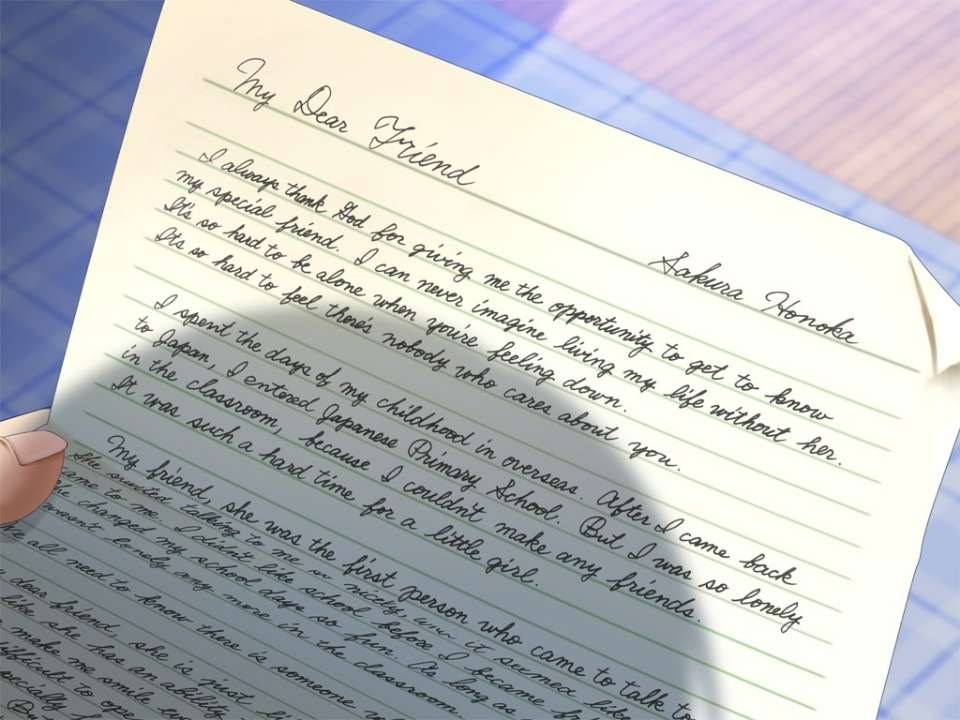 My Dear Friend
Sakura Honoka
I always thank God for giving me the opportunity to get to know
my special friend. I can never imagine living my life without her.
It's so hard to be alone when you're feeling down.
It's so hard to feel there's nobody who cares about you.
I spent the days of my childhood in overseas. After I came back
to Japan, I entered Japanese Primary School. But I was so lonely
in the classroom, because I couldn't make any friends.
It was such a hard time for a little girl.
My friend, she was the first person who came to talk to
She started talking to me so nicely and it seemed like
came to me. I didn't like school before I became
changed my school days so fun. As long as
lonely any more in the classroom.
We all need to know there is someone
dear friend, she is just
like she has an ability
make me smile
difficult to